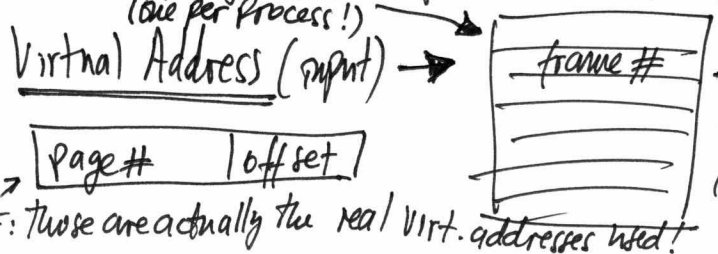 (one per process!)
Virtual Address (input)
frame #
page # offset
: those are actually the real virt. addresses used!